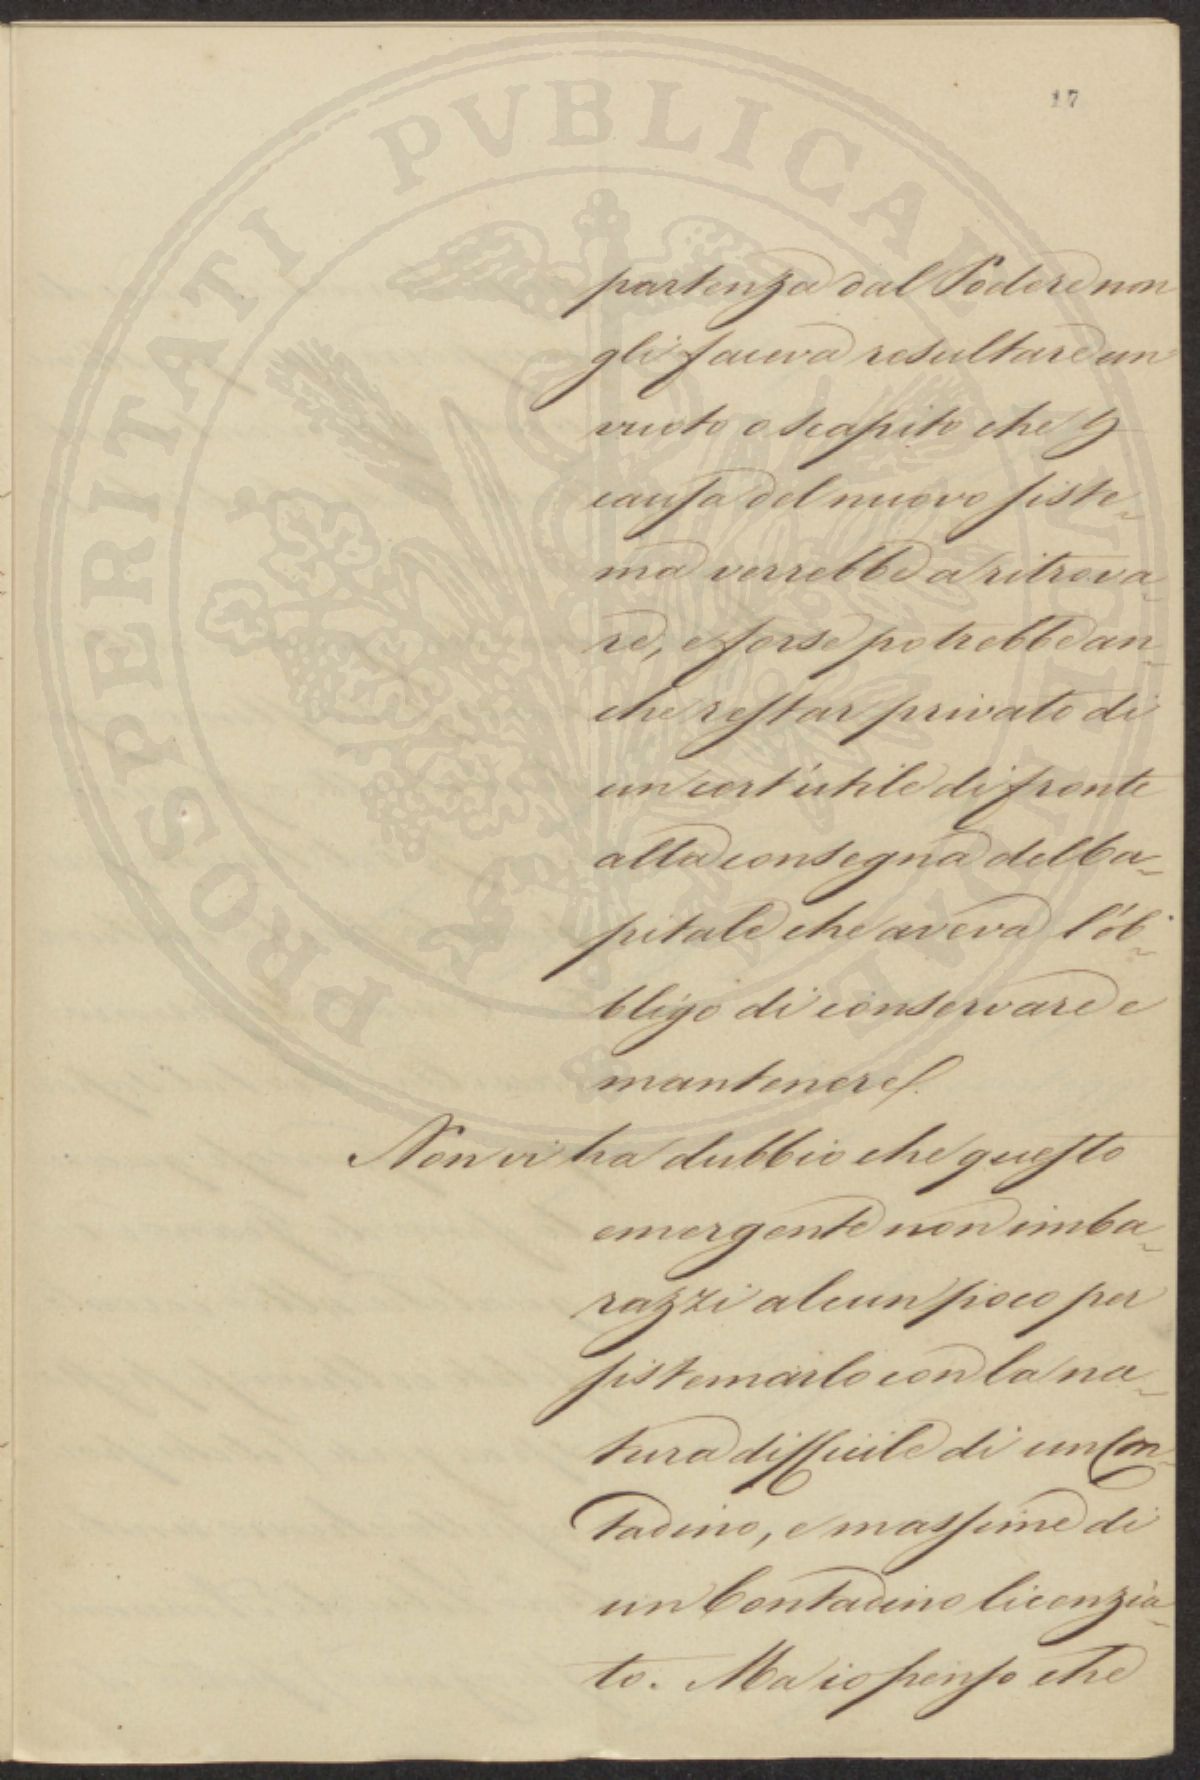 17
PROSPERITATI PVBLICAE AVGENDAE
partenza dal Podere non
gli faceva resultare un
vuoto o scapito che p
causa del nuovo siste-
ma verrebbe a ritrova-
re, e forse potrebbe an-
che restar privato di
un cert'utile di fronte
alla consegna del Ca-
pitale che aveva l'ob-
bligo di conservare e
mantenere.
Non vi ha dubbio che questo
emergente non imba-
razzi alcun poco per
sistemarlo con la na-
tura difficile di un Con-
tadino, e massime di
un Contadino licenzia-
to. Ma io penso che